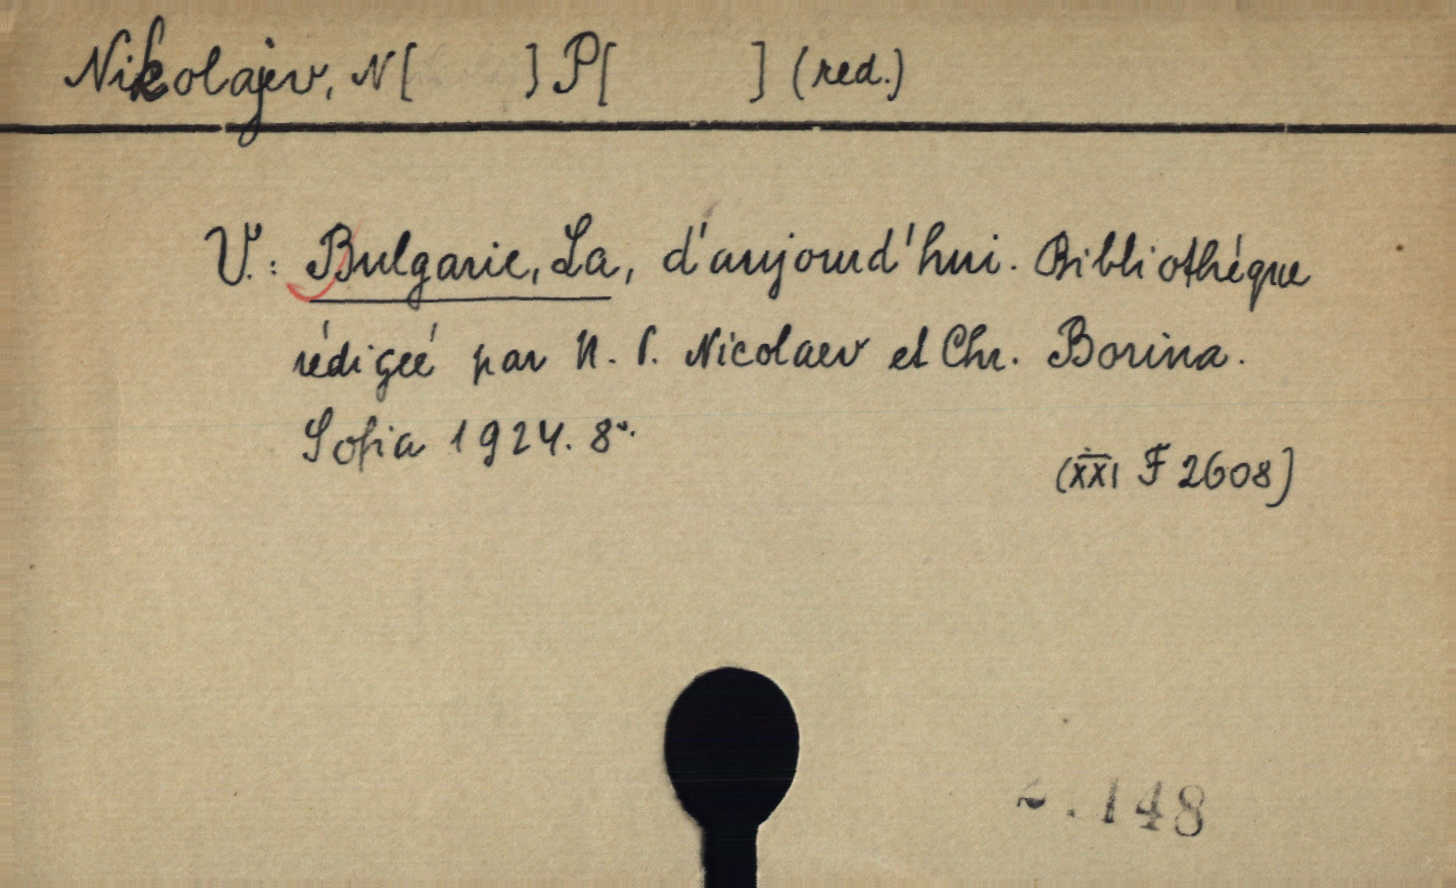 Nikolajev, N[ ] P[ ] (red.)
V.: Bulgarie, La, d'aujourd'hui. Bibliothéque
rédigeé par N. P. Nicolaev et Chr. Borina.
Sofia 1924. 8°.
(XXI F 2608)
148